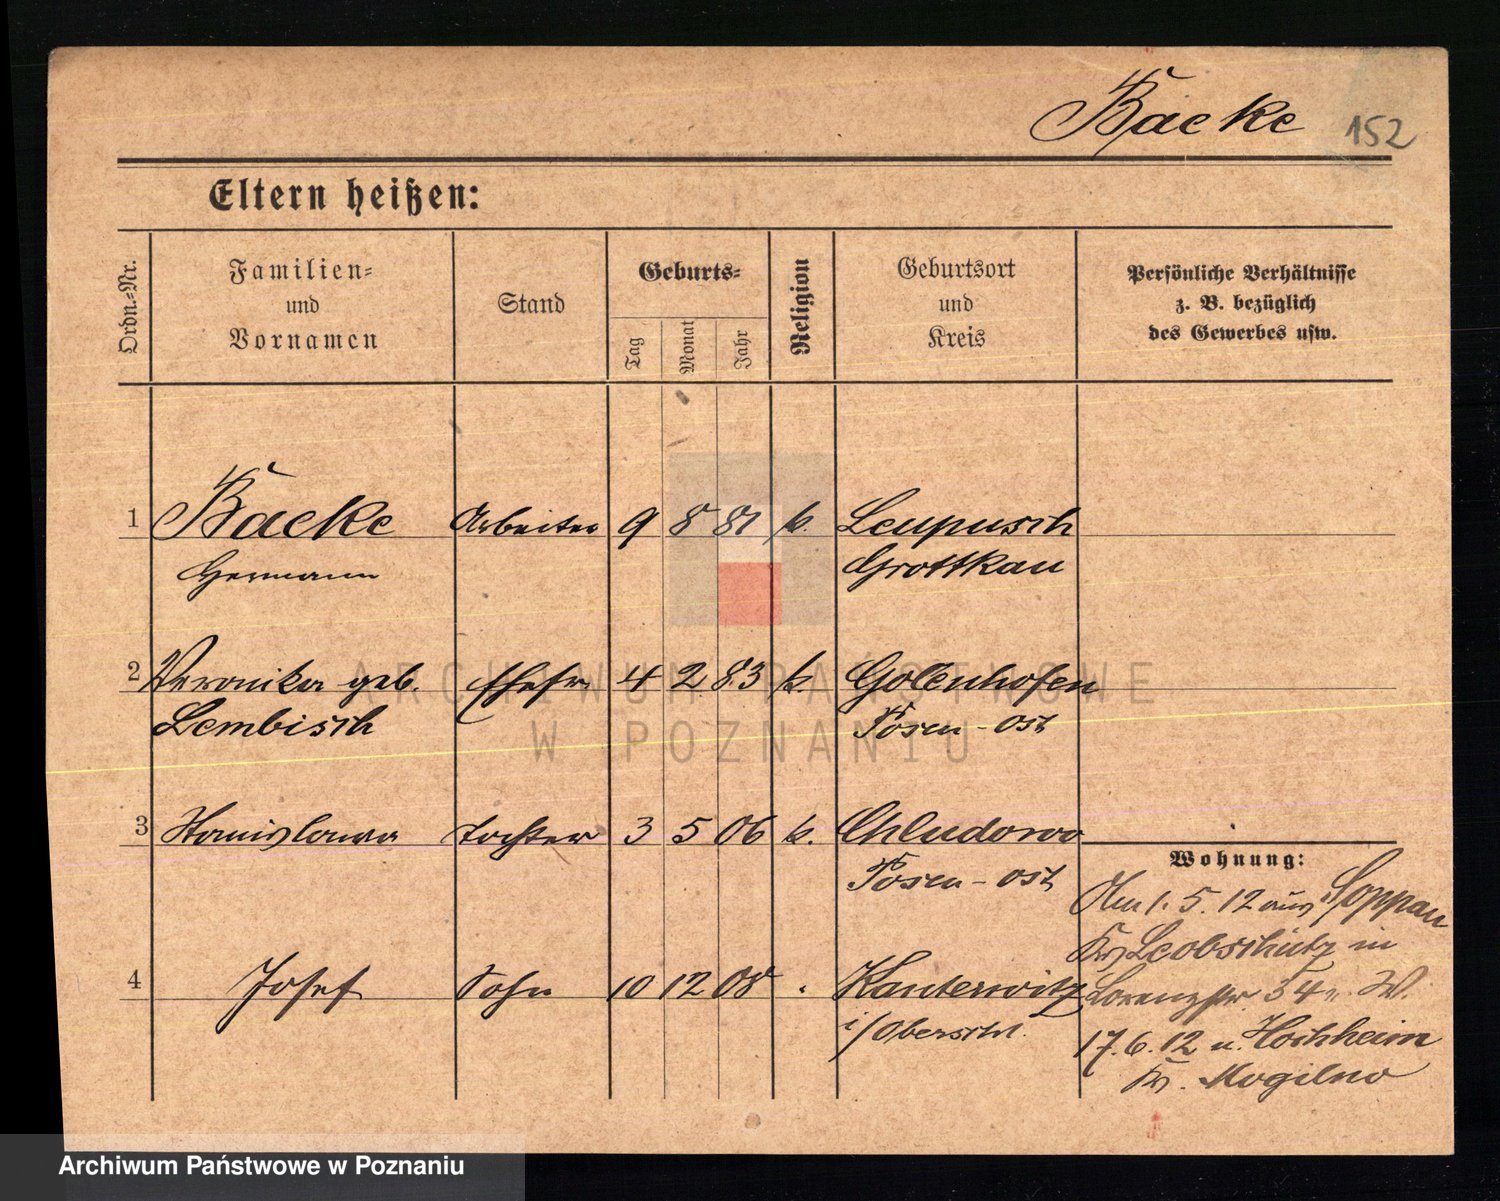 Backe 152
Eltern heißen:
Ordn.=Nr.
Familien=
und
Vornamen
Stand
Geburts=
Tag
Monat
Jahr
Religion
Geburtsort
und
Kreis
Persönliche Verhältnisse
z. B. bezüglich
des Gewerbes usw.
1 Backe Arbeiter 9 8 81 k. Leupusch
Hermann Grottkau
2 Veronika geb. Ehefr. 4 2 83 k. Golenhofen
Lembisch Posen-Ost
3 Stanislawa Tochter 3 5 06 k. Chludowo
Posen-Ost
4 Josef Sohn 10 12 08 Kanterwitz
i/Oberschl.
Wohnung:
Am 1.5.12 aus Soppau
Kr Leobschütz in
Lorenzstr 34 W.
17.6.12 n. Hochheim
Kr. Mogilno
ARCHIWUM PAŃSTWOWE
W POZNANIU
Archiwum Państwowe w Poznaniu